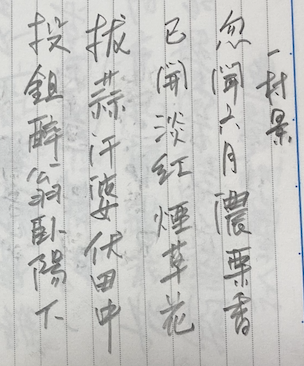 一村景
忽聞六月濃栗香
已開淡紅煙草花
拔蒜汗婆伏田中
投鉏醉翁臥陽下